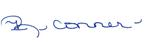 R. Conner